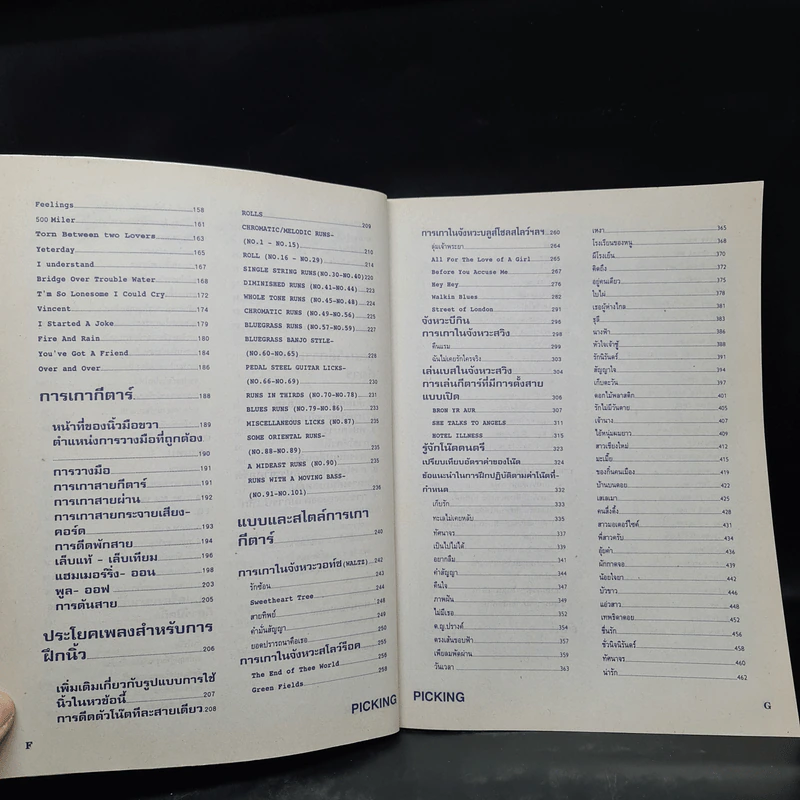 Feelings 158
500 Miler 161
Torn Between two Lovers 163
Yeterday 165
I understand 167
Bridge Over Trouble Water 168
T'm So Lonesome I Could Cry 172
Vincent 174
I Started A Joke 179
Fire And Rain 180
You've Got A Friend 184
Over and Over 186
การเกากีตาร์ 188
หน้าที่ของนิ้วมือขวา 189
ตำแหน่งการวางมือที่ถูกต้อง
190
การวางมือ 191
การเกาสายกีตาร์ 191
การเกาสายผ่าน 192
การเกาสายกระจายเสียง-
คอร์ด 193
การดีดพักสาย 194
เล็บแท้ - เล็บเทียม 196
แฮมเมอร์ริ่ง- ออน 198
พูล- ออฟ 203
การดันสาย 205
ประโยคเพลงสำหรับการ
ฝึกนิ้ว 206
เพิ่มเติมเกี่ยวกับรูปแบบการใช้
นิ้วในหัวข้อนี้ 207
การดีดตัวโน๊ตทีละสายเดียว 208
F
ROLLS 209
CHROMATIC/MELODIC RUNS-
(NO.1 - NO.15) 210
ROLL (NO.16 - NO.29) 214
SINGLE STRING RUNS(NO.30-NO.40) 220
DIMINISHED RUNS (NO.41-NO.44) 223
WHOLE TONE RUNS (NO.45-NO.48) 224
CHROMATIC RUNS (NO.49-NO.56) 225
BLUEGRASS RUNS (NO.57-NO.59) 227
BLUEGRASS BANJO STYLE-
(NO.60-NO.65) 228
PEDAL STEEL GUITAR LICKS-
(NO.66-NO.69) 230
RUNS IN THIRDS (NO.70-NO.78) 231
BLUES RUNS (NO.79-NO.86) 233
MISCELLANEOUS LICKS (NO.87) 235
SOME ORIENTAL RUNS-
(NO.88-NO.89) 235
A MIDEAST RUNS (NO.90) 235
RUNS WITH A MOVING BASS-
(NO.91-NO.101) 236
แบบและสไตล์การเกา
กีตาร์ 240
การเกาในจังหวะวอท์ซ(WALTZ) 242
รักซ้อน 243
Sweetheart Tree 244
สายทิพย์ 248
คำมั่นสัญญา 249
ยอดปรารถนาคือเธอ 250
การเกาในจังหวะสโลว์ร็อค 255
The End of Thee World 256
Green Fields 258
PICKING
การเกาในจังหวะบลูส์โซลสโลว์ฯลฯ 260
ลุ่มเจ้าพระยา 264
All For The Love of A Girl 265
Before You Accuse Me 267
Hey Hey 276
Walkin Blues 282
Street of London 291
จังหวะบีกิน 296
การเกาในจังหวะสวิง 298
คืนแรม 299
ฉันไม่เคยรักใครจริง 303
เล่นเบสในจังหวะสวิง 304
การเล่นกีตาร์ที่มีการตั้งสาย
แบบเปิด 306
BRON YR AUR 307
SHE TALKS TO ANGELS 311
HOTEL ILLNESS 315
รู้จักโน้ตดนตรี 323
เปรียบเทียบอัตราค่าของโน้ต 324
ข้อแนะนำในการฝึกปฏิบัติตามค่าโน้ตที่-
กำหนด 332
เก็บรัก 333
ทะเลไม่เคยหลับ 335
ทัศนาจร 337
เป็นไปไม่ได้ 339
อยากลืม 341
คำสัญญา 344
คืนใจ 347
ภาพฝัน 349
ไม่มีเธอ 352
ด.ญ.ปรางค์ 354
ตรงเส้นขอบฟ้า 357
เพียงลมพัดผ่าน 359
วันเวลา 363
PICKING
เหงา 365
โรงเรียนของหนู 368
มีโรงเย็น 370
คิดถึง 372
อยู่คนเดียว 375
ใบไผ่ 378
เธอผู้ห่างไกล 381
ธุลี 383
นางฟ้า 386
หัวใจเจ้าชู้ 388
รักนิรันดร์ 391
สัญญาใจ 394
เก็บตะวัน 397
ดอกไม้พลาสติก 401
รักไม่มีวันตาย 405
เจ้านาง 407
ไอ้หนุ่มผมยาว 409
สาวเชียงใหม่ 412
มะเมี๊ยะ 415
ของกิ๋นคนเมือง 419
บ้านบนดอย 422
เสเลเมา 425
คนสึ่งตึง 428
สาวมอเตอร์ไซค์ 431
พี่สาวครับ 434
อุ๊ยคำ 436
ผักกาดจอ 439
น้อยไจยา 442
บัวขาว 446
แอ่วสาว 448
เทพธิดาดอย 452
ชื่นรัก 456
ชั่วนิจนิรันดร์ 458
ทัศนาจร 460
น่ารัก 462
G